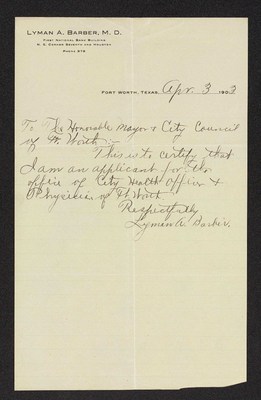 LYMAN A. BARBER, M. D.
FIRST NATIONAL BANK BUILDING
N. E. CORNER SEVENTH AND HOUSTON
PHONE 875
FORT WORTH, TEXAS, Apr. 3 1903
To The Honorable Mayor & City Council
of Ft Worth :-
This is to certify that
I am an applicant for the
office of City Health Officer &
Physician of Ft Worth
Respectfully
Lyman A. Barber.